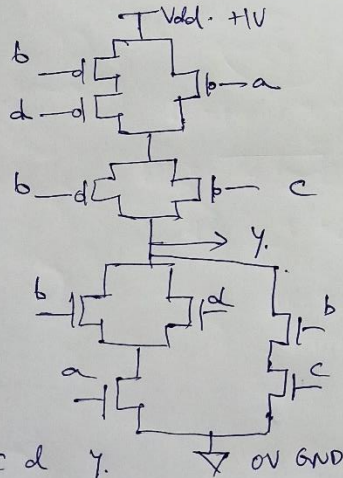 Vdd. +1V
b
d
a
b
c
y.
b
d
b
a
c
c d y.
0V GND